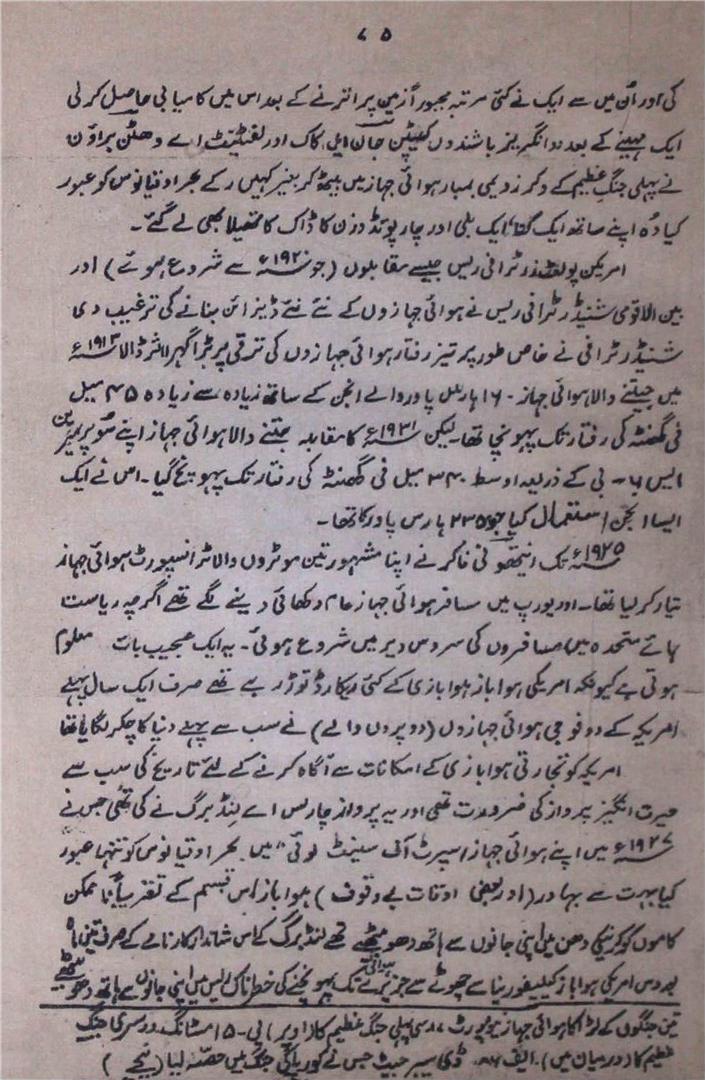 ۷۵
کی اور اُن میں سے ایک نے کئی مرتبہ مجبوراً زمین پر اترنے کے بعد اس میں کامیابی حاصل کر لی
ایک مہینے کے بعد دو انگریز باشندوں کیپٹن جان ایل کاک اور لفٹیننٹ اے وھٹن براؤن
نے پہلی جنگِ عظیم کے وکرز ویمی بمبار ہوائی جہاز میں بیٹھ کر بغیر کہیں رکے بحر اوقیانوس کو عبور
کیا وُہ اپنے ساتھ ایک کتا، ایک بلی اور چار پونڈ وزن کا ڈاک کا تھیلا بھی لے گئے۔
امریکن پولٹنڈر ٹرافی ریس جیسے مقابلوں (جو ۱۹۲۰ء سے شروع ہوئے) اور
بین الاقوامی شنیڈر ٹرافی ریس نے ہوائی جہازوں کے نئے نئے ڈیزائن بنانے کی ترغیب دی
شنیڈر ٹرافی نے خاص طور پر تیز رفتار ہوائی جہازوں کی ترقی پر بڑا گہرا اثر ڈالا ۱۹۱۳ء
میں جیتنے والا ہوائی جہاز ۱۶۰ ہارس پاور والے انجن کے ساتھ زیادہ سے زیادہ ۴۵ میل
فی گھنٹہ کی رفتار تک پہونچا تھا۔ لیکن ۱۹۳۱ء کا مقابلہ جتنے والا ہوائی جہاز اپنے سُوپر میرین
ایس ۶۔ بی کے ذریعہ اوسط ۳۴۰ میل فی گھنٹہ کی رفتار تک پہونچ گیا۔ اس نے ایک
ایسا انجن استعمال کیا جو ۲۳۵ ہارس پاور کا تھا۔
۱۹۲۵ء تک انیتھونی فاکر نے اپنا مشہور تین موٹروں والا ٹرانسپورٹ ہوائی جہاز
تیار کر لیا تھا۔ اور یورپ میں مسافر ہوائی جہاز عام دکھائی دینے لگے تھے اگرچہ ریاست
ہائے متحدہ میں مسافروں کی سروس دیر میں شروع ہوئی۔ یہ ایک عجیب بات معلوم
ہوتی ہے کیونکہ امریکی ہوا باز ہوا بازی کے کئی ریکارڈ توڑ رہے تھے صرف ایک سال پہلے
امریکہ کے دو فوجی ہوائی جہازوں (دو پروں والے) نے سب سے پہلے دنیا کا چکر لگایا تھا
امریکہ کو تجارتی ہوا بازی کے امکانات سے آگاہ کرنے کے لئے تاریخ کی سب سے
حیرت انگیز پرواز کی ضرورت تھی اور یہ پرواز چارلس اے لنڈ برگ نے کی تھی جس نے
۱۹۲۷ء میں اپنے ہوائی جہاز اسپرٹ آف سینٹ لوئی" میں بحر اوقیانوس کو تنہا عبور
کیا بہت سے بہادر (اور بعض اوقات بے وقوف) ہوا باز اس قسم کے تقریباً ناممکن
کاموں کو کرنیکی دھن میں اپنی جانوں سے ہاتھ دھو بیٹھے تھے لنڈ برگ کے اس شاندار کارنامے کے صرف تین ماہ
بعد دس امریکی ہوا باز کیلیفورنیا سے چھوٹے سے جزیرے ہوائی تک پہونچنے کی خطرناک ریس میں اپنی جانوں سے ہاتھ دھو بیٹھے
تین جنگوں کے لڑاکا ہوائی جہاز پہلی جنگ عظیم کا (اوپر) پی۔۵۱ مسٹانگ دوسری جنگ
عظیم کا (درمیان میں) ایف ۸۶ سیبر جیٹ جس نے کوریائی جنگ میں حصّہ لیا (نیچے)